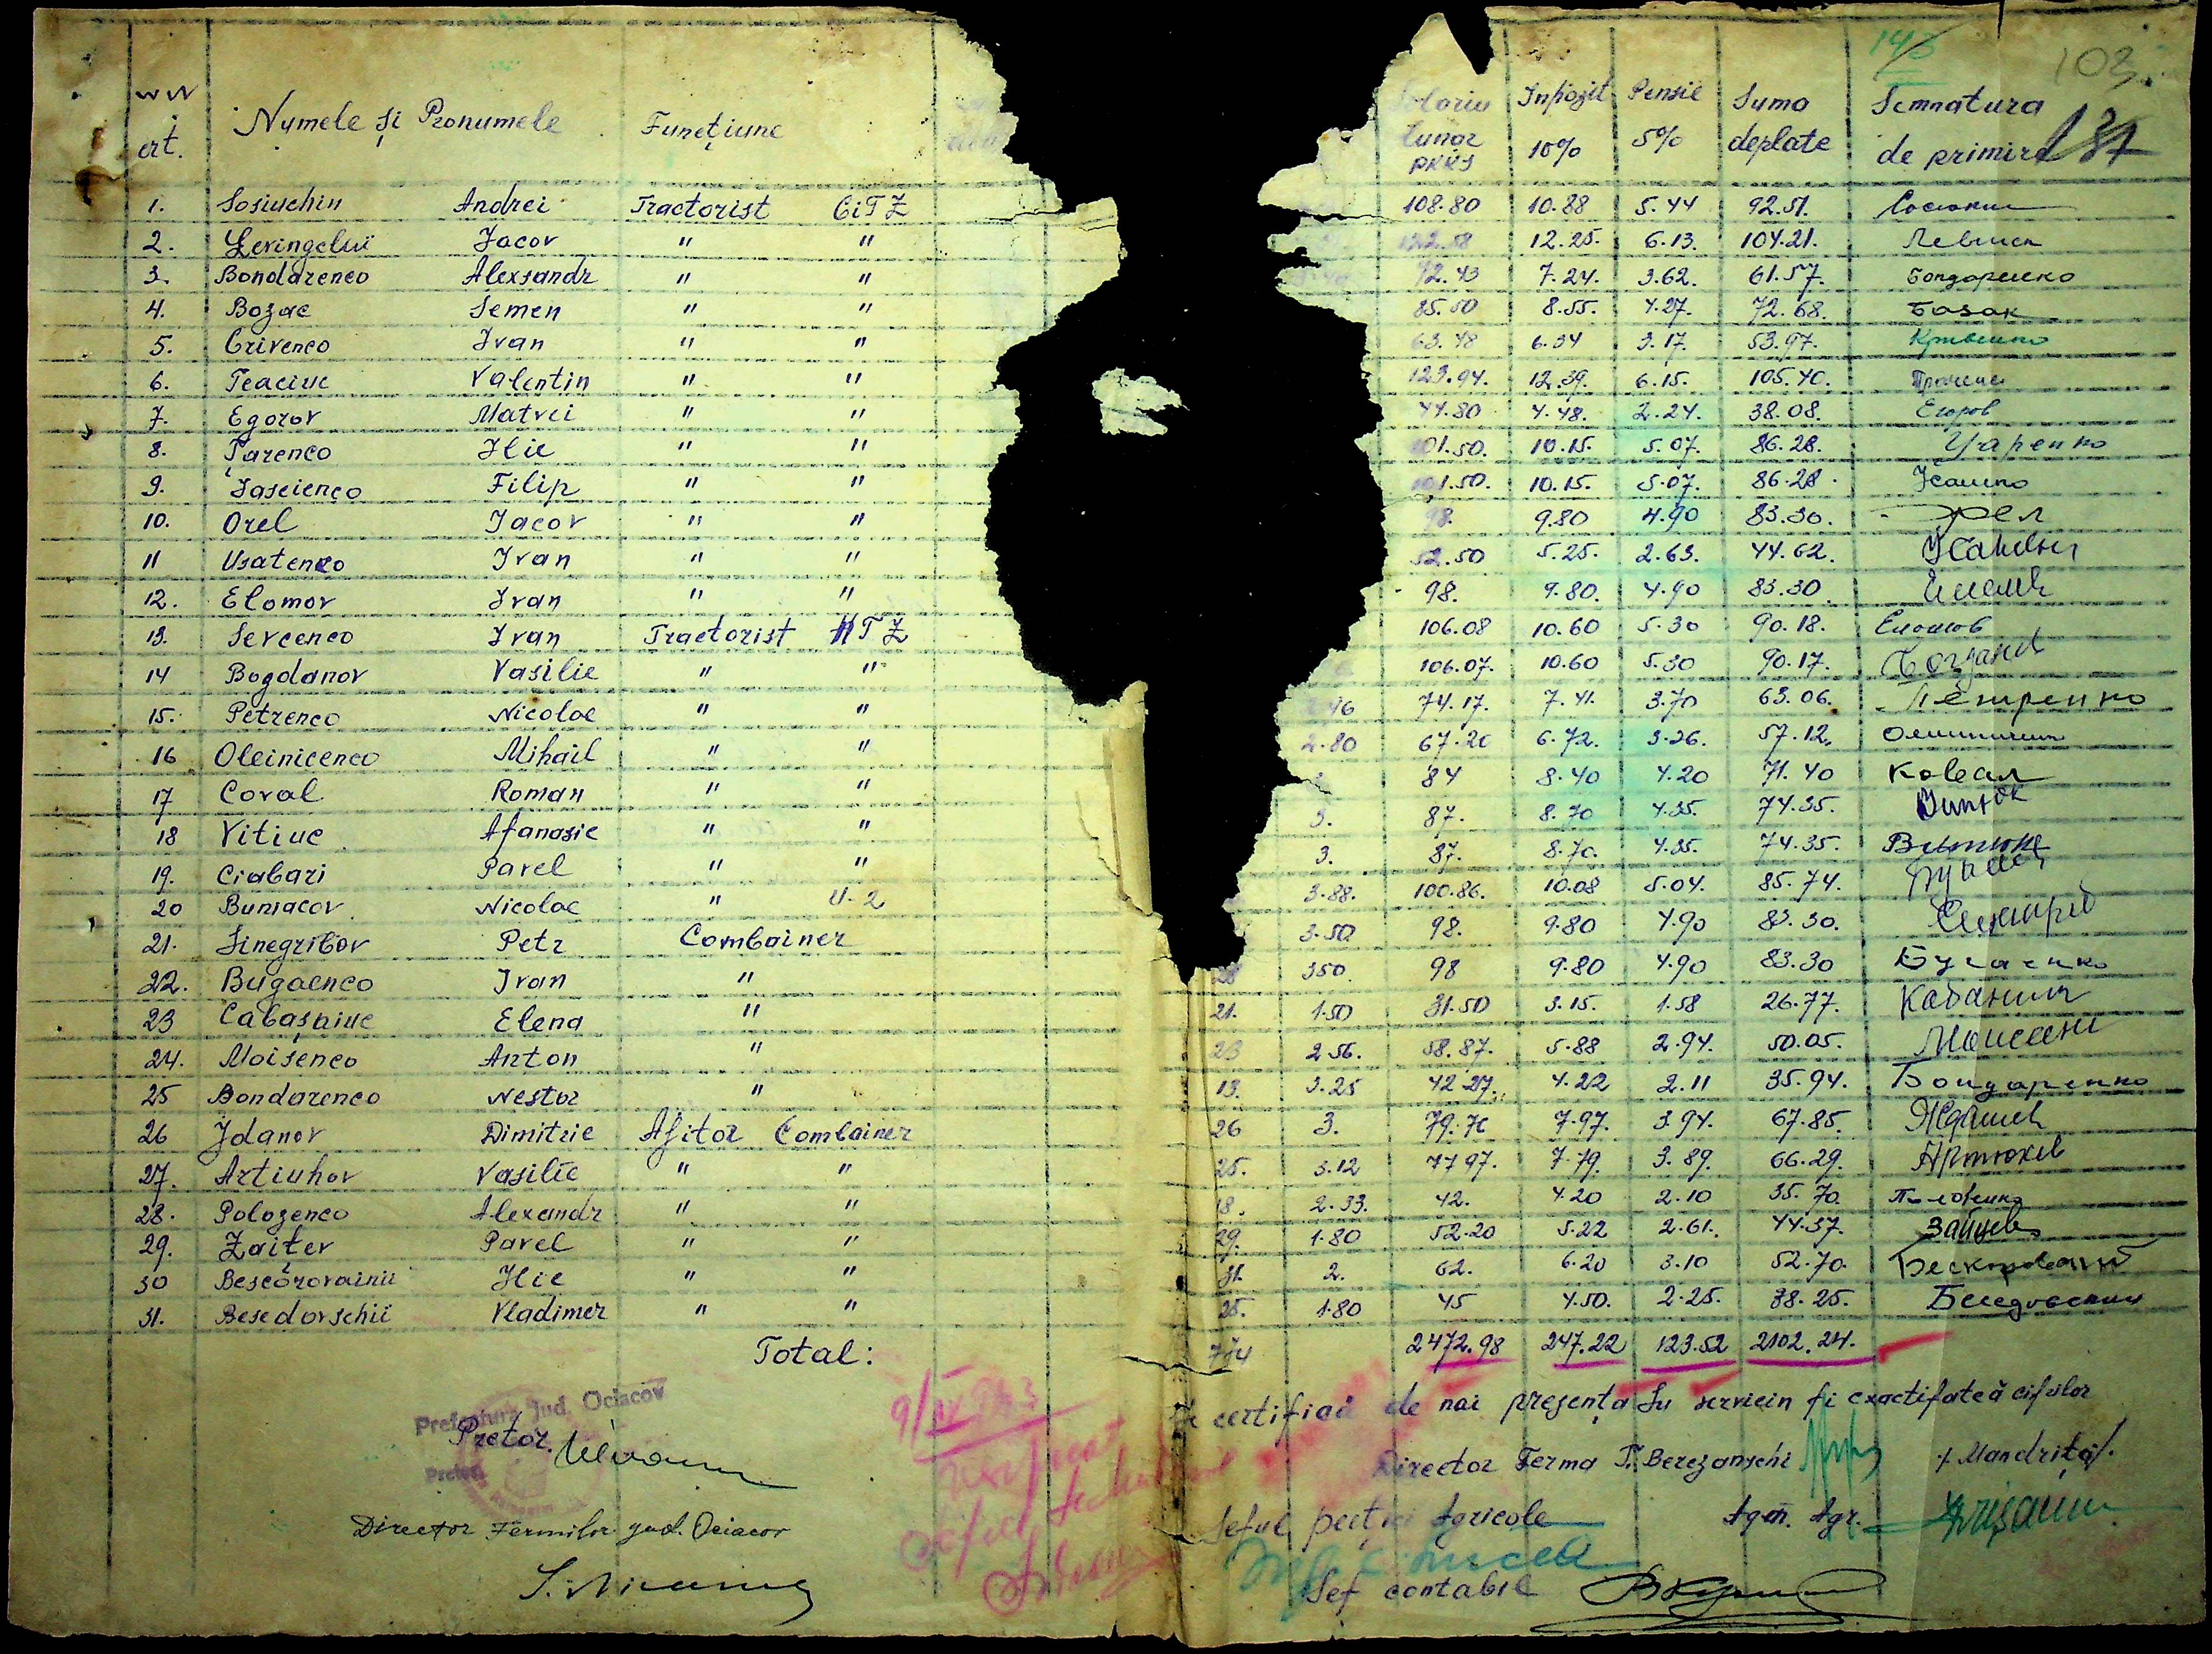 143
103
137
NN crt. Numele și Pronumele Funcțiune Salariu lunar RKKS Inpozit 10% Pensie 5% Suma deplate Semnatura de primire
1. Sosiuchin Andrei Tractorist CiTZ 108.80 10.88 5.44 92.51.
2. Levingelui Jacov " " 12.25. 6.13. 104.21.
3. Bondarenco Alexsandr " " 72.43 7.24. 3.62. 61.57. Бондаренко
4. Bozac Semen " " 85.50 8.55. 4.27. 72.68. Базак
5. Crivenco Ivan " " 63.48 6.34 3.17. 53.97.
6. Tcaciuc Valentin " " 123.94. 12.39. 6.15. 105.40.
7. Egorov Matvei " " 44.80 4.48. 2.24. 38.08. Егоров
8. Țarenco Ilie " " 101.50. 10.15. 5.07. 86.28. Царенко
9. Iascienco Filip " " 101.50. 10.15. 5.07. 86.28.
10. Orel Jacov " " 98. 9.80 4.90 83.30. Орел
11 Usatenco Ivan " " 52.50 5.25. 2.63. 44.62.
12. Elomov Ivan " " 98. 9.80. 4.90 83.30
13. Sevcenco Ivan Tractorist HTZ 106.08 10.60 5.30 90.18.
14 Bogdanov Vasilie " " 106.07. 10.60 5.30 90.17.
15. Petrenco Nicolae " " 74.17. 7.41. 3.70 63.06. Петренко
16 Oleinicenco Mihail " " 2.80 67.20 6.72. 3.36. 57.12.
17 Coval Roman " " 84 8.40 4.20 71.40 Коваль
18 Vitiuc Afanasie " " 3. 87. 8.70 4.35. 74.35.
19. Ciabari Pavel " " 3. 87. 8.70. 4.35. 74.35.
20 Buniacov Nicolae " U-2 3.88. 100.86. 10.08 5.04. 85.74.
21. Sinegribov Petr Combainer 3.50 98. 9.80 4.90 83.30.
22. Bugaenco Ivan " 28 350 98 9.80 4.90 83.30 Бугаенко
23 Cabașniuc Elena " 21. 1.50 31.50 3.15. 1.58 26.77.
24. Moisenco Anton " 23 2.56. 58.87. 5.88 2.94. 50.05.
25 Bondarenco Nestor " 13. 3.25 42.27. 4.22 2.11 35.94. Бондаренко
26 Jdanov Dimitrie Ajitor Combainer 26 3. 79.76 7.97. 3.94. 67.85.
27. Artiuhov Vasilie " " 25. 3.12 77 97. 7.79. 3.89. 66.29. Артюхов
28. Polozenco Alexandr " " 18. 2.33. 42. 4.20 2.10 35.70
29. Zaițev Pavel " " 29. 1.80 52.20 5.22 2.61. 44.37. Зайцев
30 Bescorovainii Ilie " " 31. 2. 62. 6.20 3.10 52.70.
31. Besedovschii Vladimer " " 25. 1.80 45 4.50. 2.25. 38.25. Беседовский
Total: 714 2472.98 247.22 123.52 2102.24.
certifică de noi prezența în serviciu și exactitatea cifrelor
Prefectura Jud. Ociacov
Pretor.
Director Ferma T. Berezanschi / Mandrița/.
Director Fermelor jud. Ociacov
Șeful secției Agricole Agen. Agr.
Șef contabil